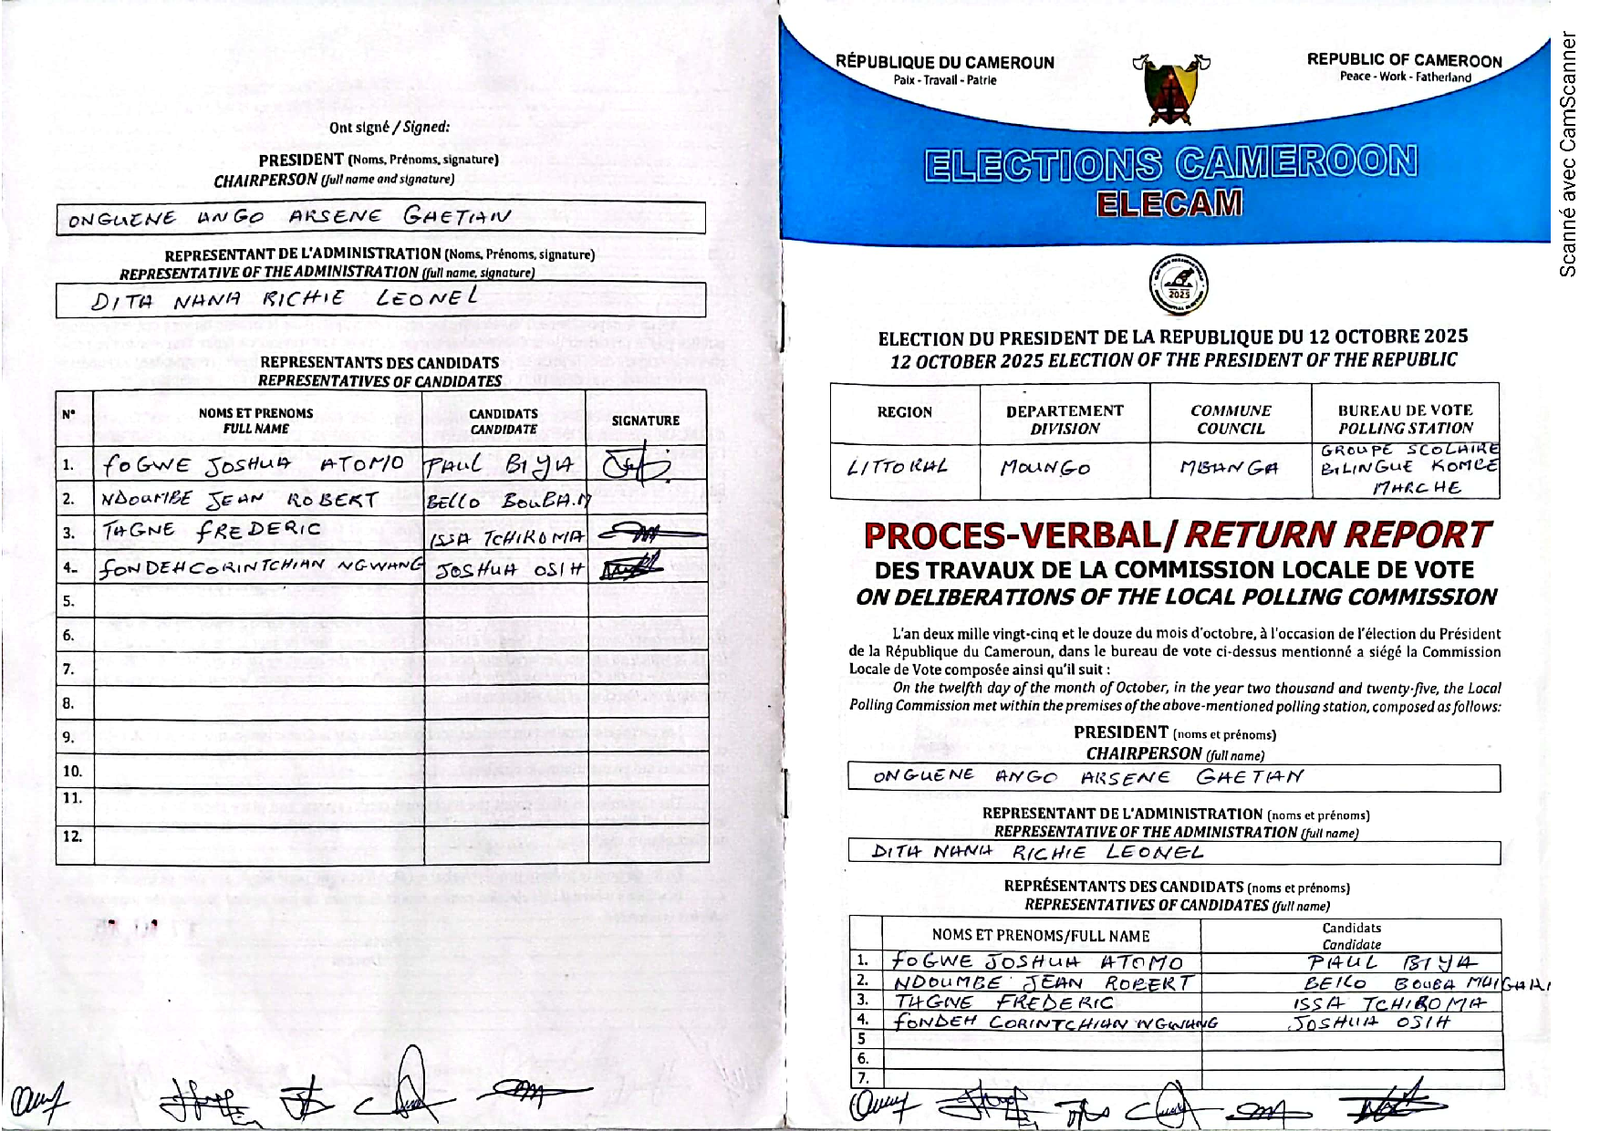 Ont signé / Signed:
PRESIDENT (Noms, Prénoms, signature)
CHAIRPERSON (full name and signature)
ONGUENE ANGO ARSENE GAETAN
REPRESENTANT DE L'ADMINISTRATION (Noms, Prénoms, signature)
REPRESENTATIVE OF THE ADMINISTRATION (full name, signature)
DITA NANA RICHIE LEONEL
REPRESENTANTS DES CANDIDATS
REPRESENTATIVES OF CANDIDATES
N° NOMS ET PRENOMS FULL NAME CANDIDATS CANDIDATE SIGNATURE
1. FOGWE JOSHUA ATOMO PAUL BIYA
2. NDOUMBE JEAN ROBERT BELLO BOUBA.M
3. TAGNE FREDERIC ISSA TCHIROMA
4. FONDEH CORINTCHIAN NGWANG JOSHUA OSIH
5.
6.
7.
8.
9.
10.
11.
12.
RÉPUBLIQUE DU CAMEROUN
Paix - Travail - Patrie
REPUBLIC OF CAMEROON
Peace - Work - Fatherland
ELECTIONS CAMEROON
ELECAM
2025
ELECTION DU PRESIDENT DE LA REPUBLIQUE DU 12 OCTOBRE 2025
12 OCTOBER 2025 ELECTION OF THE PRESIDENT OF THE REPUBLIC
REGION DEPARTEMENT DIVISION COMMUNE COUNCIL BUREAU DE VOTE POLLING STATION
LITTORAL MOUNGO MBANGA GROUPE SCOLAIRE
BILINGUE KOMBE
MARCHE
PROCES-VERBAL/RETURN REPORT
DES TRAVAUX DE LA COMMISSION LOCALE DE VOTE
ON DELIBERATIONS OF THE LOCAL POLLING COMMISSION
L'an deux mille vingt-cinq et le douze du mois d'octobre, à l'occasion de l'élection du Président
de la République du Cameroun, dans le bureau de vote ci-dessus mentionné a siégé la Commission
Locale de Vote composée ainsi qu'il suit :
On the twelfth day of the month of October, in the year two thousand and twenty-five, the Local
Polling Commission met within the premises of the above-mentioned polling station, composed as follows:
PRESIDENT (noms et prénoms)
CHAIRPERSON (full name)
ONGUENE ANGO ARSENE GAETAN
REPRESENTANT DE L'ADMINISTRATION (noms et prénoms)
REPRESENTATIVE OF THE ADMINISTRATION (full name)
DITA NANA RICHIE LEONEL
REPRÉSENTANTS DES CANDIDATS (noms et prénoms)
REPRESENTATIVES OF CANDIDATES (full name)
NOMS ET PRENOMS/FULL NAME Candidats Candidate
1. FOGWE JOSHUA ATOMO PAUL BIYA
2. NDOUMBE JEAN ROBERT BELLO BOUBA MAIGARI
3. TAGNE FREDERIC ISSA TCHIROMA
4. FONDEH CORINTCHIAN NGWANG JOSHUA OSIH
5
6.
7.
Scanné avec CamScanner